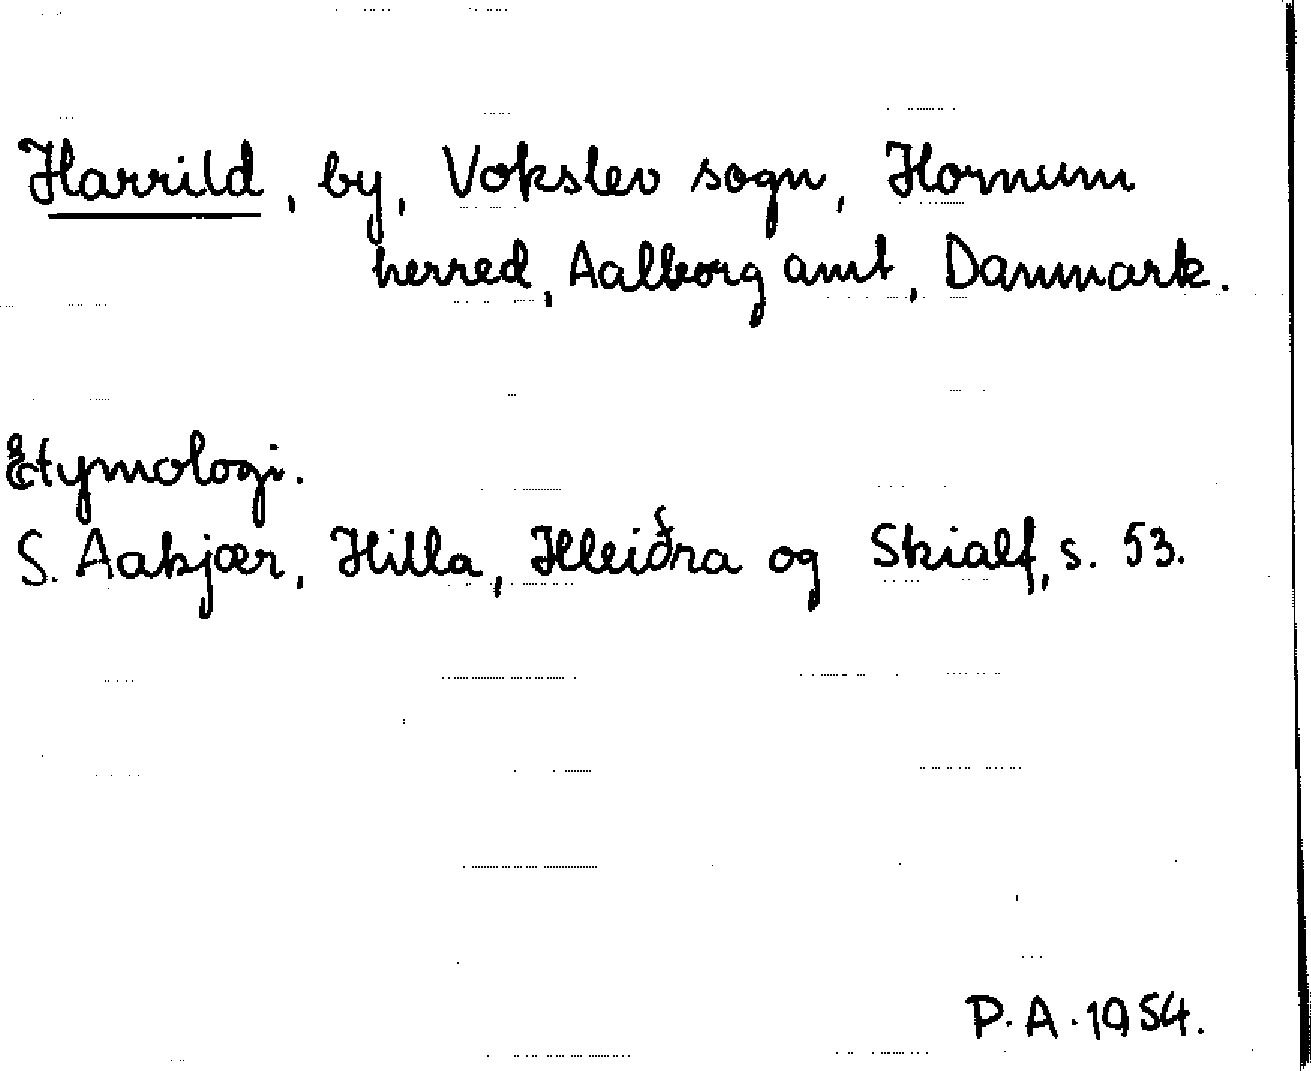 Harrild, by, Vokslev sogn, Hornum
herred, Aalborg amt, Danmark.
Etymologi.
S. Aakjær, Hilla, Hleiðra og Skialf, s. 53.
P.A. 1954.